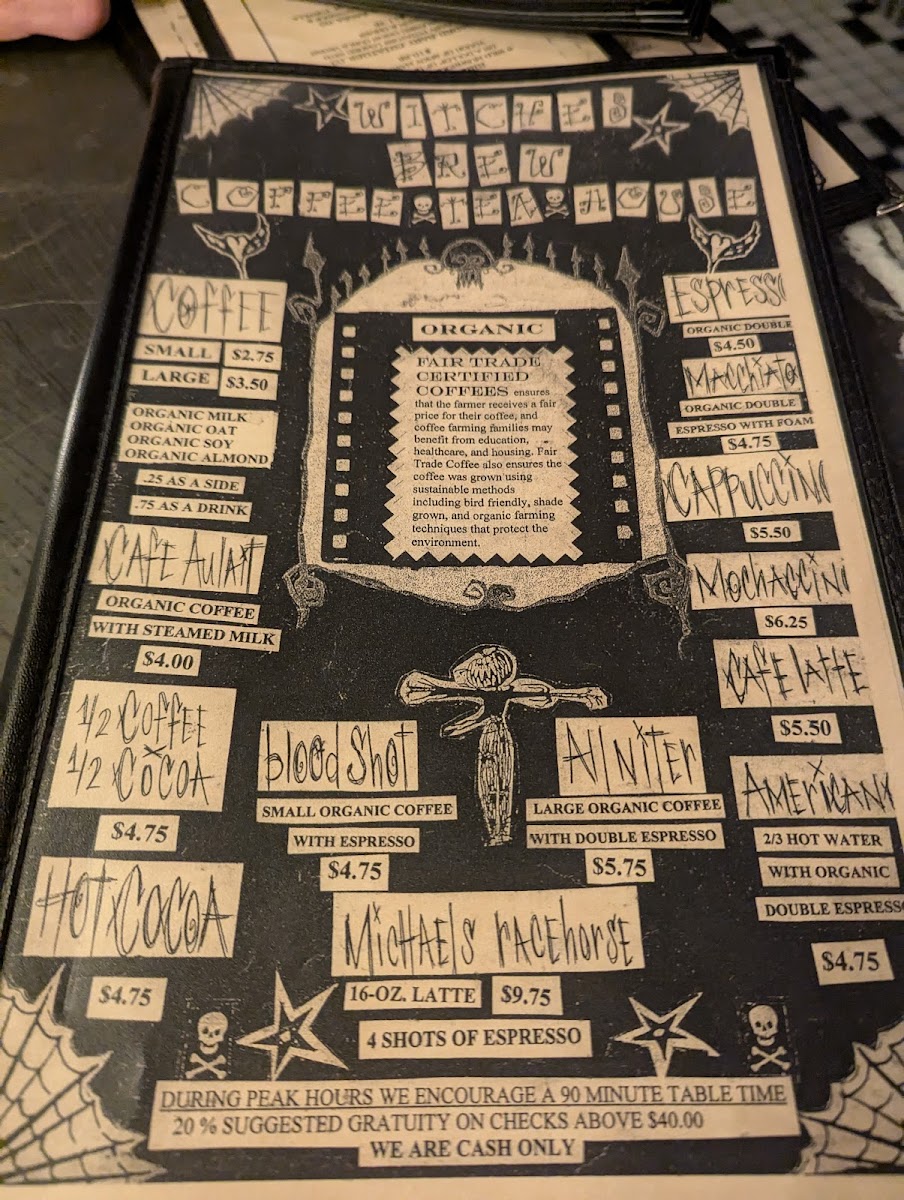 WITCHES
BREW
COFFEE TEA HOUSE
COFFEE
SMALL $2.75
LARGE $3.50
ORGANIC MILK
ORGANIC OAT
ORGANIC SOY
ORGANIC ALMOND
.25 AS A SIDE
.75 AS A DRINK
CAFE AuLAiT
ORGANIC COFFEE
WITH STEAMED MILK
$4.00
1/2 COFFEE
1/2 COCOA
$4.75
HOT COCOA
$4.75
ORGANIC
FAIR TRADE
CERTIFIED
COFFEES ensures
that the farmer receives a fair
price for their coffee, and
coffee farming families may
benefit from education,
healthcare, and housing. Fair
Trade Coffee also ensures the
coffee was grown using
sustainable methods
including bird friendly, shade
grown, and organic farming
techniques that protect the
environment.
blood Shot
SMALL ORGANIC COFFEE
WITH ESPRESSO
$4.75
AllNiTEr
LARGE ORGANIC COFFEE
WITH DOUBLE ESPRESSO
$5.75
MicHAEls rACEhorsE
16-OZ. LATTE $9.75
4 SHOTS OF ESPRESSO
ESPRESSO
ORGANIC DOUBLE
$4.50
MACChiATO
ORGANIC DOUBLE
ESPRESSO WITH FOAM
$4.75
CAPPUCCINO
$5.50
MochACCINO
$6.25
CAFE LATTE
$5.50
AMERiCANO
2/3 HOT WATER
WITH ORGANIC
DOUBLE ESPRESSO
$4.75
DURING PEAK HOURS WE ENCOURAGE A 90 MINUTE TABLE TIME
20 % SUGGESTED GRATUITY ON CHECKS ABOVE $40.00
WE ARE CASH ONLY